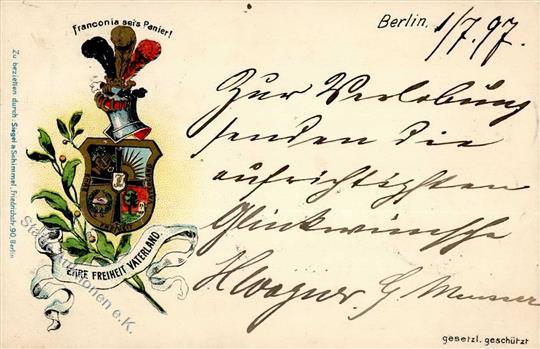 Franconia sei's Panier!
Berlin. 1/7.97.
Zur Verlobung
senden die
aufrichtigsten
Glückwünsche
HWagner.
EHRE FREIHEIT VATERLAND
Zu beziehen durch: Siegel & Schimmel, Friedrichstr. 90, Berlin
gesetzl. geschützt